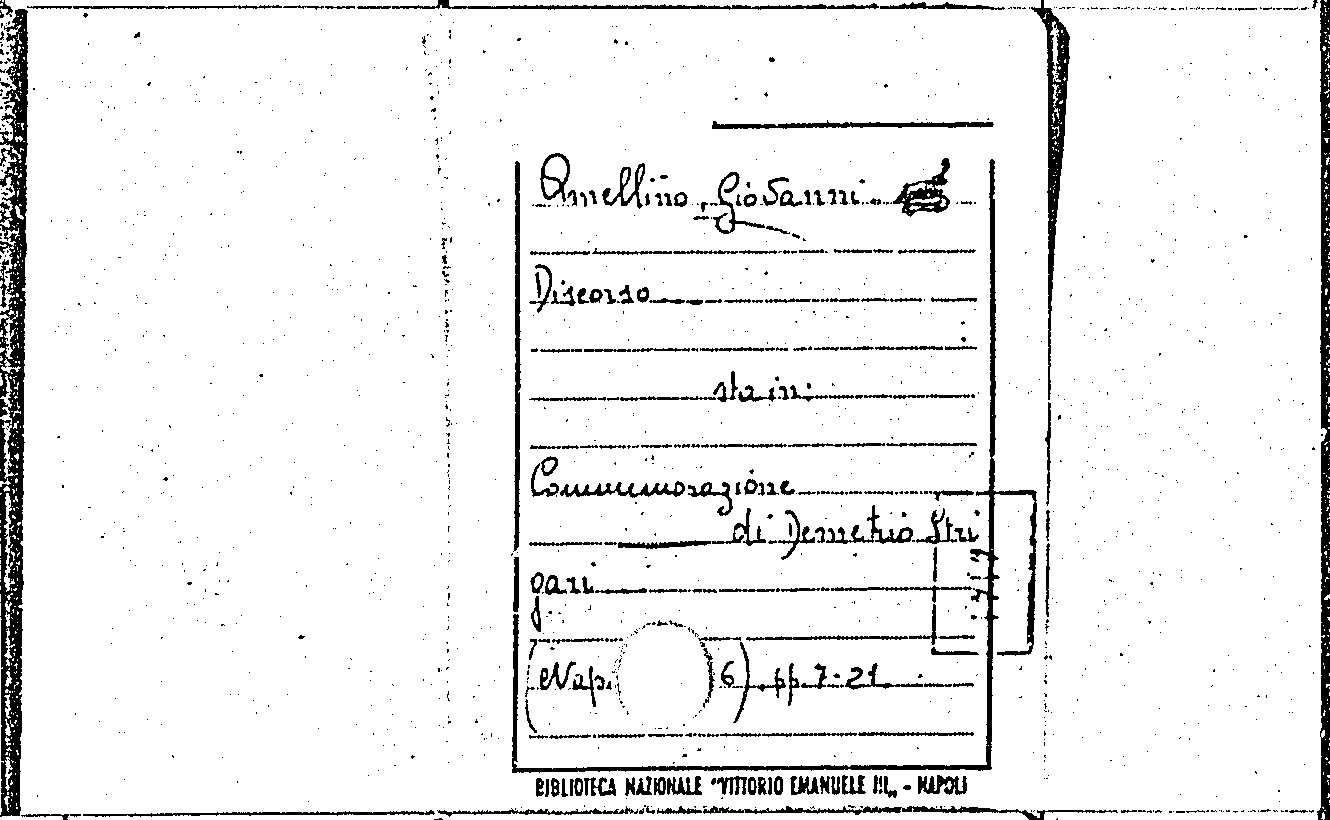 Amellino, Giovanni.
Discorso
sta in:
Commemorazione
di Demetrio Stri
gari
(Nap. 6) pp. 7-21
BIBLIOTECA NAZIONALE "VITTORIO EMANUELE III„ - NAPOLI